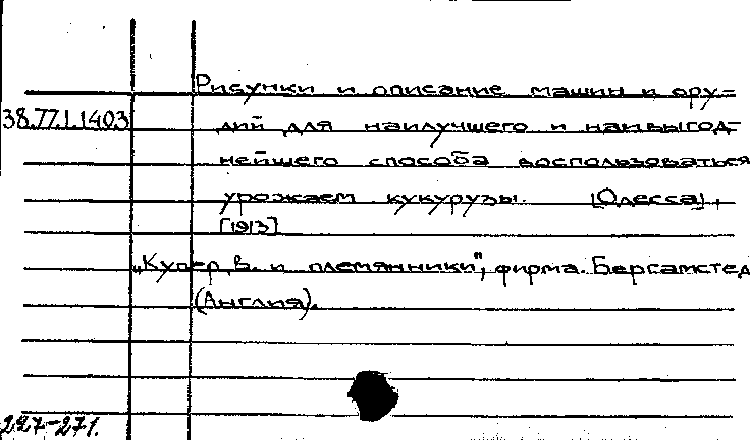 Рисунки и описание машин и ору=
38.77.1.1403
дий для наилучшего и наивыгод-
нейшего способа воспользоваться
урожаем кукурузы. [Одесса],
[1913]
„Купер, В. и племянники", фирма. Бергамстед
(Англия).
227-271.